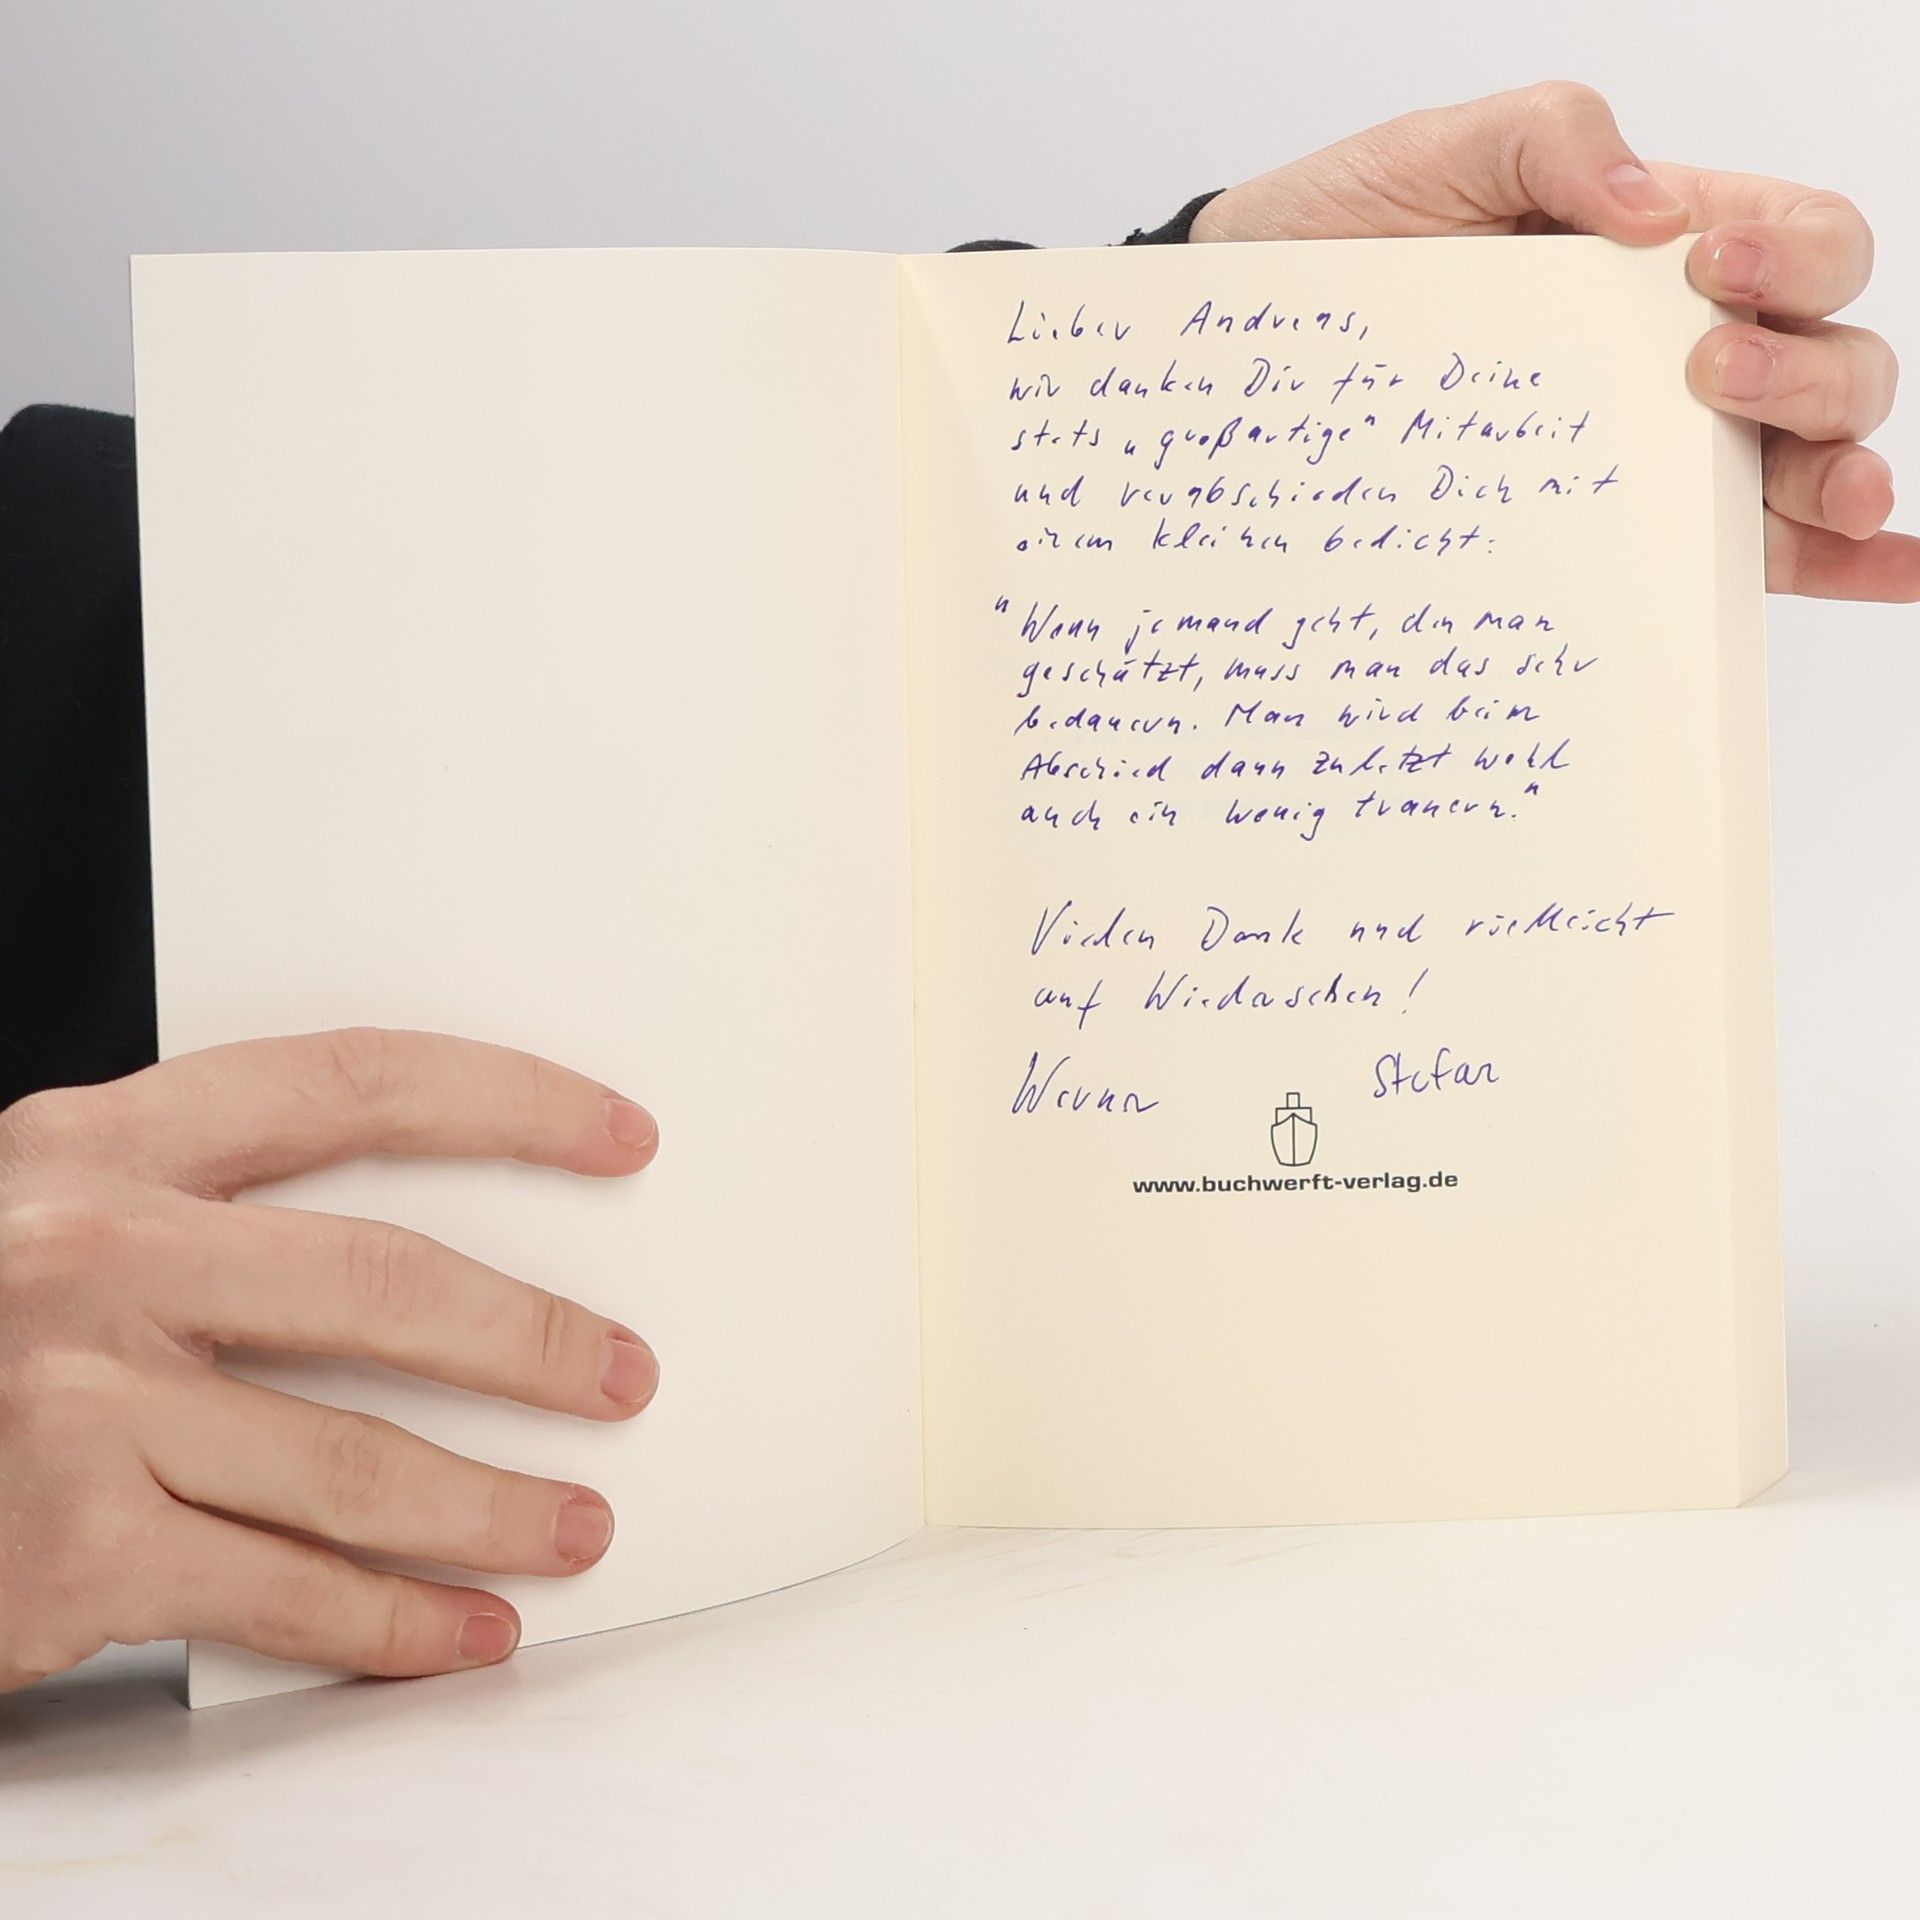 Lieber Andreas,
wir danken Dir für Deine
stets „großartige" Mitarbeit
und verabschieden Dich mit
einem kleinen Gedicht:
"Wenn jemand geht, den man
geschätzt, muss man das sehr
bedauern. Man wird beim
Abschied dann zuletzt wohl
auch ein wenig trauern."
Vielen Dank und vielleicht
auf Wiedersehen!
Werner Stefan
www.buchwerft-verlag.de